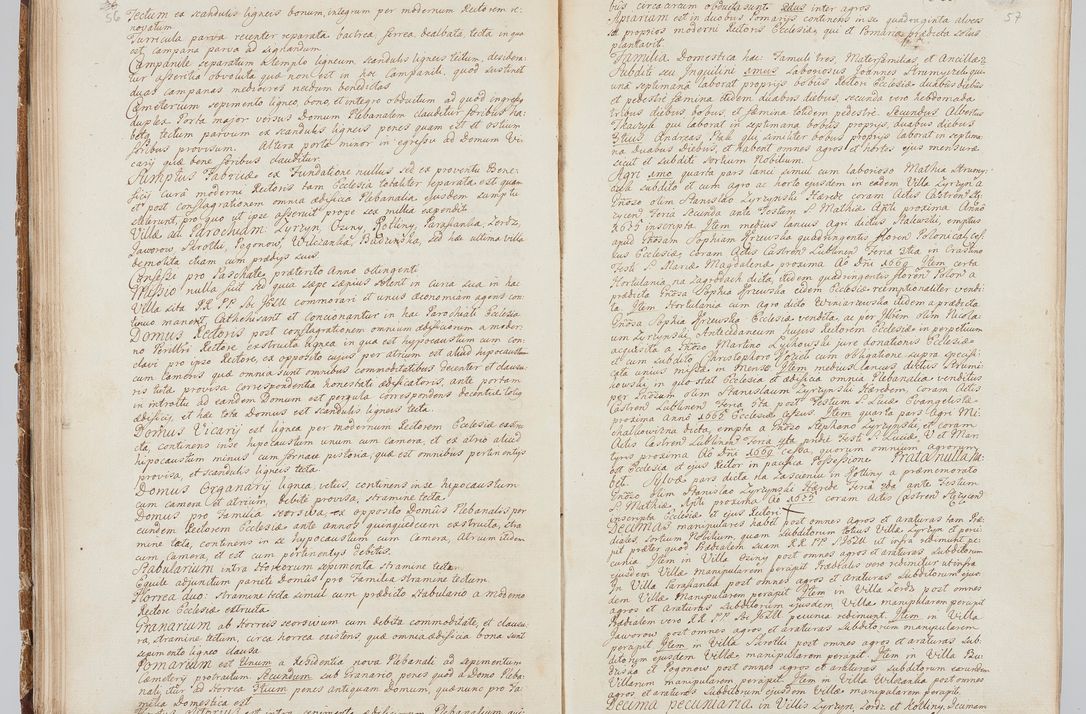 56
Tectum ex scandulis ligneis bonum, integrum per modernum Rectorem re:
novatum
Turricula parva recenter reparata bactrea ferrea dealbata, tecta in qua
est campana parva ad signandum
Campanile separatum à templo ligneum scandulis ligneis tectum, desidera:
tur asseritia obvoluta quæ non est in hoc Campanili, quod sustinet
duas campanas mediocres necdum benedictas
Cæmeterium sepimento ligneo, bono, et integro obductum ad quod ingressus
duplex. Porta major versus Domum Plebanalem clauditur foribus ha:
bets, tectum parvum ex scandulis ligneis penes quam est et ostium
foribus provisum. Altera porta minor in egressu ad Domum Vi:
carij quæ bene foribus clauditur
Sumptus Fabricæ ex Fundatione nullus sed ex proventu Bene:
ficij cura moderni Rectoris tam Ecclesia totaliter reparata est quam
et post conflagrationem omnia ædificia Plebanalia ejusdem sumptu
steterunt, pro quo ut ipse asseruit prope sex millia expendit
Villæ ad Parochiam Zyrzyn, Osiny, Kotliny, Parafianka, Zerdz,
Jaworow Skrotki, Pogonow, Wulczanka, Baduńska, sed hæc ultima villa
demolita etiam cum prædijs suis
Confessi pro Paschate præterito Anno octingenti
Missio nulla fuit sed quia sæpe sæpius solent in curia sua in hac
Villa sita RR PP Soc JESU commorari et unus æconomiam agens con:
tinuo manent, Cathechisant et concionantur in hac Parochiali Ecclesia
Domus Rectoris post conflagrationem omnium ædificiorum a moder:
no Rectore exstructa lignea in qua est hypocaustum cum con:
clavi pro ipso Rectore, ex opposito cujus per atrium est aliud hypocaustum
cum cameris quæ omnia sunt omnibus commoditatibus decenter et clausu:
ris tota provisa correspondentia honestati ædificatoris, ante portam
in introitu ad eandem Domum est pergula correspondens decentiæ totius
ædificij, et hæc tota Domus est scandulis ligneis tecta.
Domus Vicarij est lignea per modernum Rectorem Ecclesiæ exstru:
cta, continens in se hipocaustum unum cum camera, et ex atrio aliud
hipocaustum minus cum fornace pistoria; quæ est omnibus pertinentijs
provisa, et scandulis ligneis tecta
Domus Organarij lignea, vetus, continens in se hypocaustum
cum camera et atrium, debite provisa, stramine tecta.
Domus pro Familia seorsiva, ex opposito Domus Plebanalis per
eundem Rectorem Ecclesiæ ante annos quinquedecim exstructa, stra
mine tecta, continens in se hypocaustum cum Camera, Atrium itidem
cum Camera, et est cum pertinentijs debitis.
Stabularium intra Horreorum sepimenta stramine tectum
Equile adjunctum parieti Domus pro Familia stramine tectum.
Horrea duo: stramine tecta simul cum prædicto Stabulario a moderno
Rectore Ecclesiæ exstructa
Granarium ab Horreis seorsivum cum debita commoditate, et clausu:
ra, stramine tectum, circa horrea existens, quæ omnia ædificia bona sunt
sepimento ligneo clausa.
Pomarium est Unum a Residentia nova Plebanali ad sepimentum
Cæmeterij protractum Secundum sub Granario, penes quod à Domo Pleba:
nali itur ad horrea 3tium penes antiquam Domum, quæ nunc pro Fa:
milia Domestica est
57
bus circa arcum obducta sunt. 2dus inter agros
Apiarium est in duobus Pomarijs continens in se quadraginta alveos
et proprios moderni Rectoris Ecclesiæ, qui et Pomaria prædicta solus
plantavit
Familia Domestica hæc: Famuli tres, Materfamilias, et Ancillæ 2
Subditi seu Inquilini 1mus Laboriosus Joannes Strumyzelu qui
una septimana laborat proprijs bobus Rectori Ecclesiæ duabus diebus
et pedestre fæmina itidem duabus diebus, secunda vero hebdomada
tribus diebus bobus, et fæmina totidem pedestre. Secundus Albertus
Tkaczyk qui laborat in septimana bobus proprijs, duabus diebus
3tius Andreas Pkal qui similiter bobus proprijs laborat in septima:
na duabus Diebus, et habent omnes agros et hortos ejus mensuræ
sicut et subditi sortium Nobilium.
Agri 1mo quarta pars lanei simul cum laborioso Mathia Strumy:
ala subdito et cum agro ac horto ejusdem in eadem Villa Zyrzyn a
Gnoso olim Stanislao Zyrzynski Hærede coram Actis Castren Ste:
zycien Feria Secunda ante Festum S. Mathiæ Apli proxima Anno
1635 inscripta Item medius laneus agri dictus Stawski, emptus
apud Gnosam Sophiam Grzewska quadringentis floren Polonical, cef:
sus Ecclesiæ, coram Actis Castren Lublinen Feria 3tia in Crastino
Festi S. Mariæ Magdalenæ proxima Ao Dni 1669 Item certa
Hortulania, na Zagrodach dicta, itidem quadringentis floren Polon a
prædicta Gnosa Sophia Grzewska eidem Ecclesiæ reemptionaliter vendi:
ta Item Hortulania cum agro dicto Winiarzewska itidem a prædicta
Gnosa Sophia Grzewska Ecclesiæ vendita, ac per Illrem olim Nicola:
um Zyrzynski, Antecedaneum hujus Rectorem Ecclesiæ in perpetuum
acquisita a Gnoso Martino Lychowski jure donationis Ecclesiæ
et cum subdito Christophoro Noziek cum obligatione supra specifi:
cata unius missæ in Mense. Item medius laneus dictus Strumi:
kowski, in quo stat Ecclesia et ædificia omnia Plebanalia venditus
per Gnosum olim Stanislaum Zyrzynski Hæredem, coram Actis
Castren Lublinen Feria 5ta post Festum S. Lucæ Evangelistæ
proxima Anno 1665 Ecclesiæ cessus, Item quarta pars agri Mi:
chalkowizna dicta, empta a Gnoso Stephano Zyrzynski, et coram
Actis Castren Lublinen Feria 4ta pridie Festi S. Luciæ, V. et Mar:
tyris proxima Ao Dni 1669 cessa, quorum omnium agrorum
est Ecclesia et ejus Rector in pacifica Possessione Prata nulla ha:
bet. Sylvæ pars dicta na Lascewiu in Kotliny a præmemorato
Gnoso olim Stanislao Zyrzynski Hærede Feria 2da ante Festum
S. Mathiæ Apli proxima Ao 1635 coram Actis Castren Stezycien
inscripta Ecclesiæ et ejus Rectori
Decimas manipulares habet post omnes agros et araturas tam Præ:
diales, sortium Nobilium, quam Subditorum totius Villæ Zyrzyn experci:
pit præter quod Prædialem suam RR PP JESU ut infra redimunt pe:
cunia Item in Villa Osiny post omnes agros et araturas subditorum
ejusdem Villæ manipularem percipit Prædialis vero redimitur ut infra
In Villa Parafianka post omnes agros et Araturas Subditorum ejus
dem Villæ Manipularem percipit Item in Villa Zerdz post omnes
agros et Araturas Subditorum ejusdem Villæ manipularem percipit
Prædialem vero RR PP Soc JESU pecunia redimunt Item in Villa
Jaworow post omnes agros et araturas Subditorum manipularem
percipit Item in Villa Skrotki post omnes agros et araturas Sub:
ditorum ejusdem Villæ manipularem percipit, Item in Villa Bu:
dzisa et Pogonow post omnes agros et araturas subditorum earundem
Villarum manipularem percipit. Item in Villa Wulczanka post omnes
agros et araturas Subditorum ejusdem Villæ manipularem percipit,
Decima pecuniaria in Villis Zyrzyn, Zerdz et Kotliny, Decimam